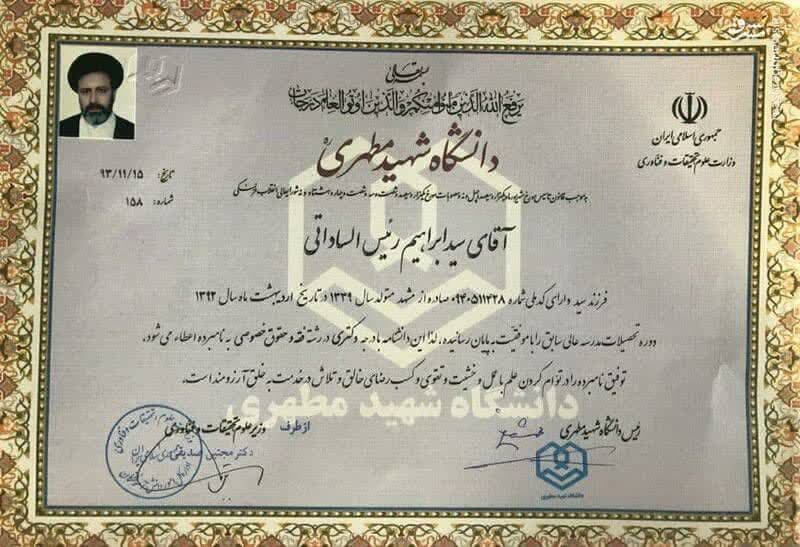 بسمه تعالی
یرفع الله الذین آمنوا منکم والذین اوتوا العلم درجات
جمهوری اسلامی ایران
وزارت علوم تحقیقات و فناوری
دانشگاه شهید مطهری
تاریخ: ۹۳/۱۱/۱۵
شماره: ۱۵۸
آقای سید ابراهیم رئیس الساداتی
فرزند سید دارای کد ملی شماره ۰۹۴۰۵۱۱۳۲۸ صادره از مشهد متولد سال ۱۳۳۹ در تاریخ اردیبهشت ماه سال ۱۳۹۲
دوره تحصیلات مدرسه عالی سابق را با موفقیت به پایان رسانیده، لذا این دانشنامه با درجه دکتری در رشته فقه و حقوق خصوصی به نامبرده اعطاء می شود.
توفیق نامبرده را در توأم کردن علم با عمل و خشیت و تقوی و کسب رضای خالق و تلاش در خدمت به خلق آرزومند است.
دانشگاه شهید مطهری
رئیس دانشگاه شهید مطهری
از طرف وزیر علوم تحقیقات و فناوری
دکتر مجتبی صدیقی
دانشگاه شهید مطهری